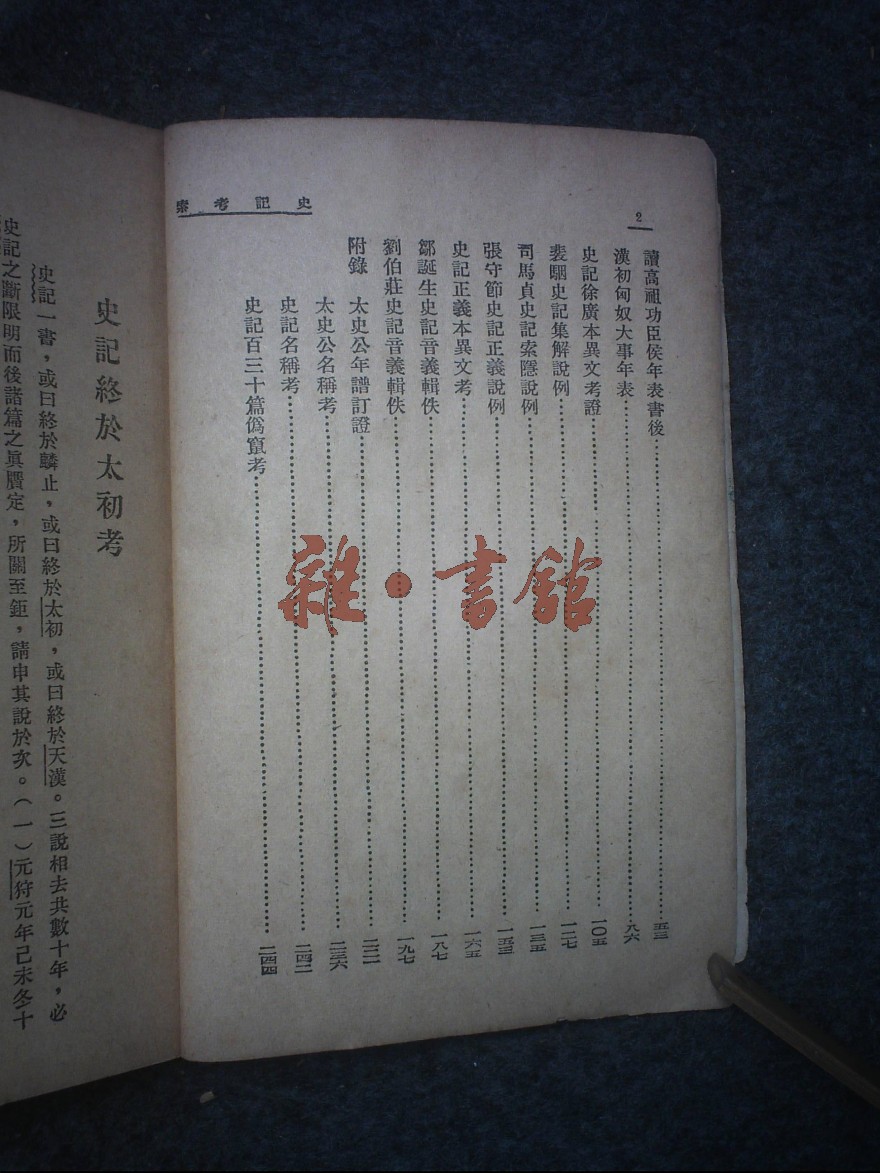 史記考索
2
讀高祖功臣侯年表書後……五三
漢初匈奴大事年表……八六
史記徐廣本異文考證……一〇五
裴駰史記集解說例……一二七
司馬貞史記索隱說例……一三五
張守節史記正義說例……一五三
史記正義本異文考……一六五
鄒誕生史記音義輯佚……一八七
劉伯莊史記音義輯佚……一九七
附錄 太史公年譜訂證……二二一
太史公名稱考……二三六
史記名稱考……二四二
史記百三十篇僞竄考……二四四
史記終於太初考
史記一書，或曰終於麟止，或曰終於太初，或曰終於天漢。三說相去共數十年，必
史記之斷限明而後諸篇之眞贋定，所關至鉅，請申其說於次。（一）元狩元年己未冬十
雜·書館